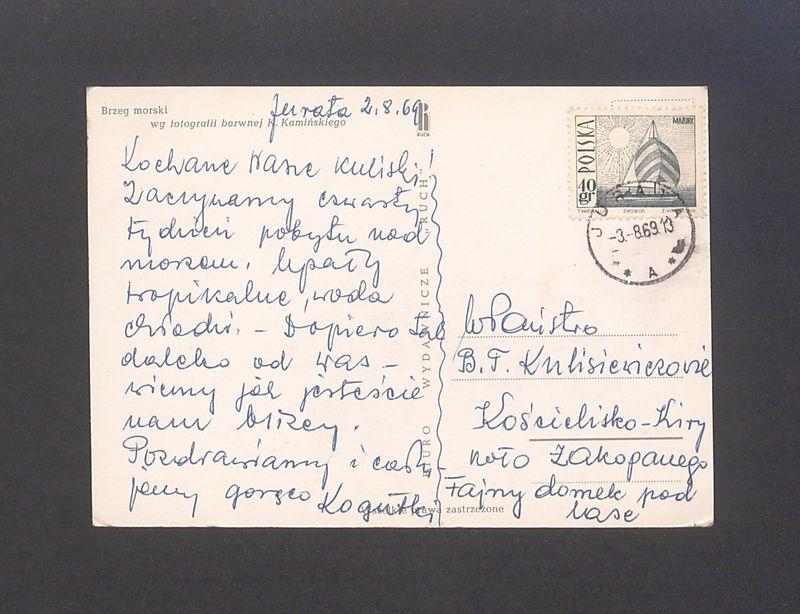 Brzeg morski
wg fotografii barwnej K. Kamińskiego
Jurata 2.8.69
RUCH
Kochane Nasze Kuliski!
Zaczynamy czwarty
tydzień pobytu nad
morzem. Upały
tropikalne, woda
- Dopiero tak
daleko od was -
wiemy jak jesteście
nam bliscy.
Pozdrawiamy i cału-
jemy gorąco Kogutki
BIURO WYDAWNICZE „RUCH”
Wszelkie prawa zastrzeżone
POLSKA
MAZURY
40 gr
JURATA
-3.-8.69 13
* A *
WPaństwo
B. T. Kulisiewiczowie
Kościelisko-Kiry
koło Zakopanego
Fajny domek pod
lasem